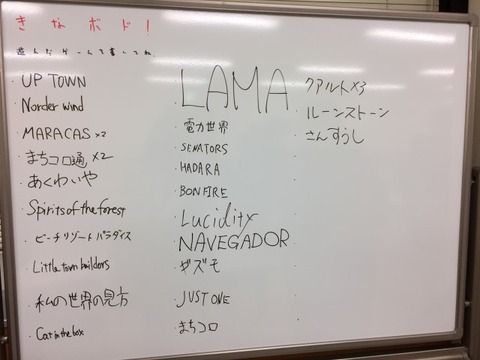 きなボド!
遊んだゲームを書いてね。
・UP TOWN
・Norder wind
・MARACAS ×2
・まちコロ通 ×2
・あくわいや
・Spirits of the forest
・ビーチリゾートパラダイス
・Little town builders
・私の世界の見方
・Cat in the box
・LAMA
・電力世界
・SENATORS
・HADARA
・BONFIRE
・Lucidity
・NAVEGADOR
・ガズモ
・JUST ONE
・まちコロ
・クアルト×3
・ルーンストーン
・さんすうし